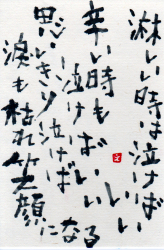 淋しい時は泣けばいい
辛い時も泣けばいい
思いきり泣けば
涙も枯れ笑顔になる
文